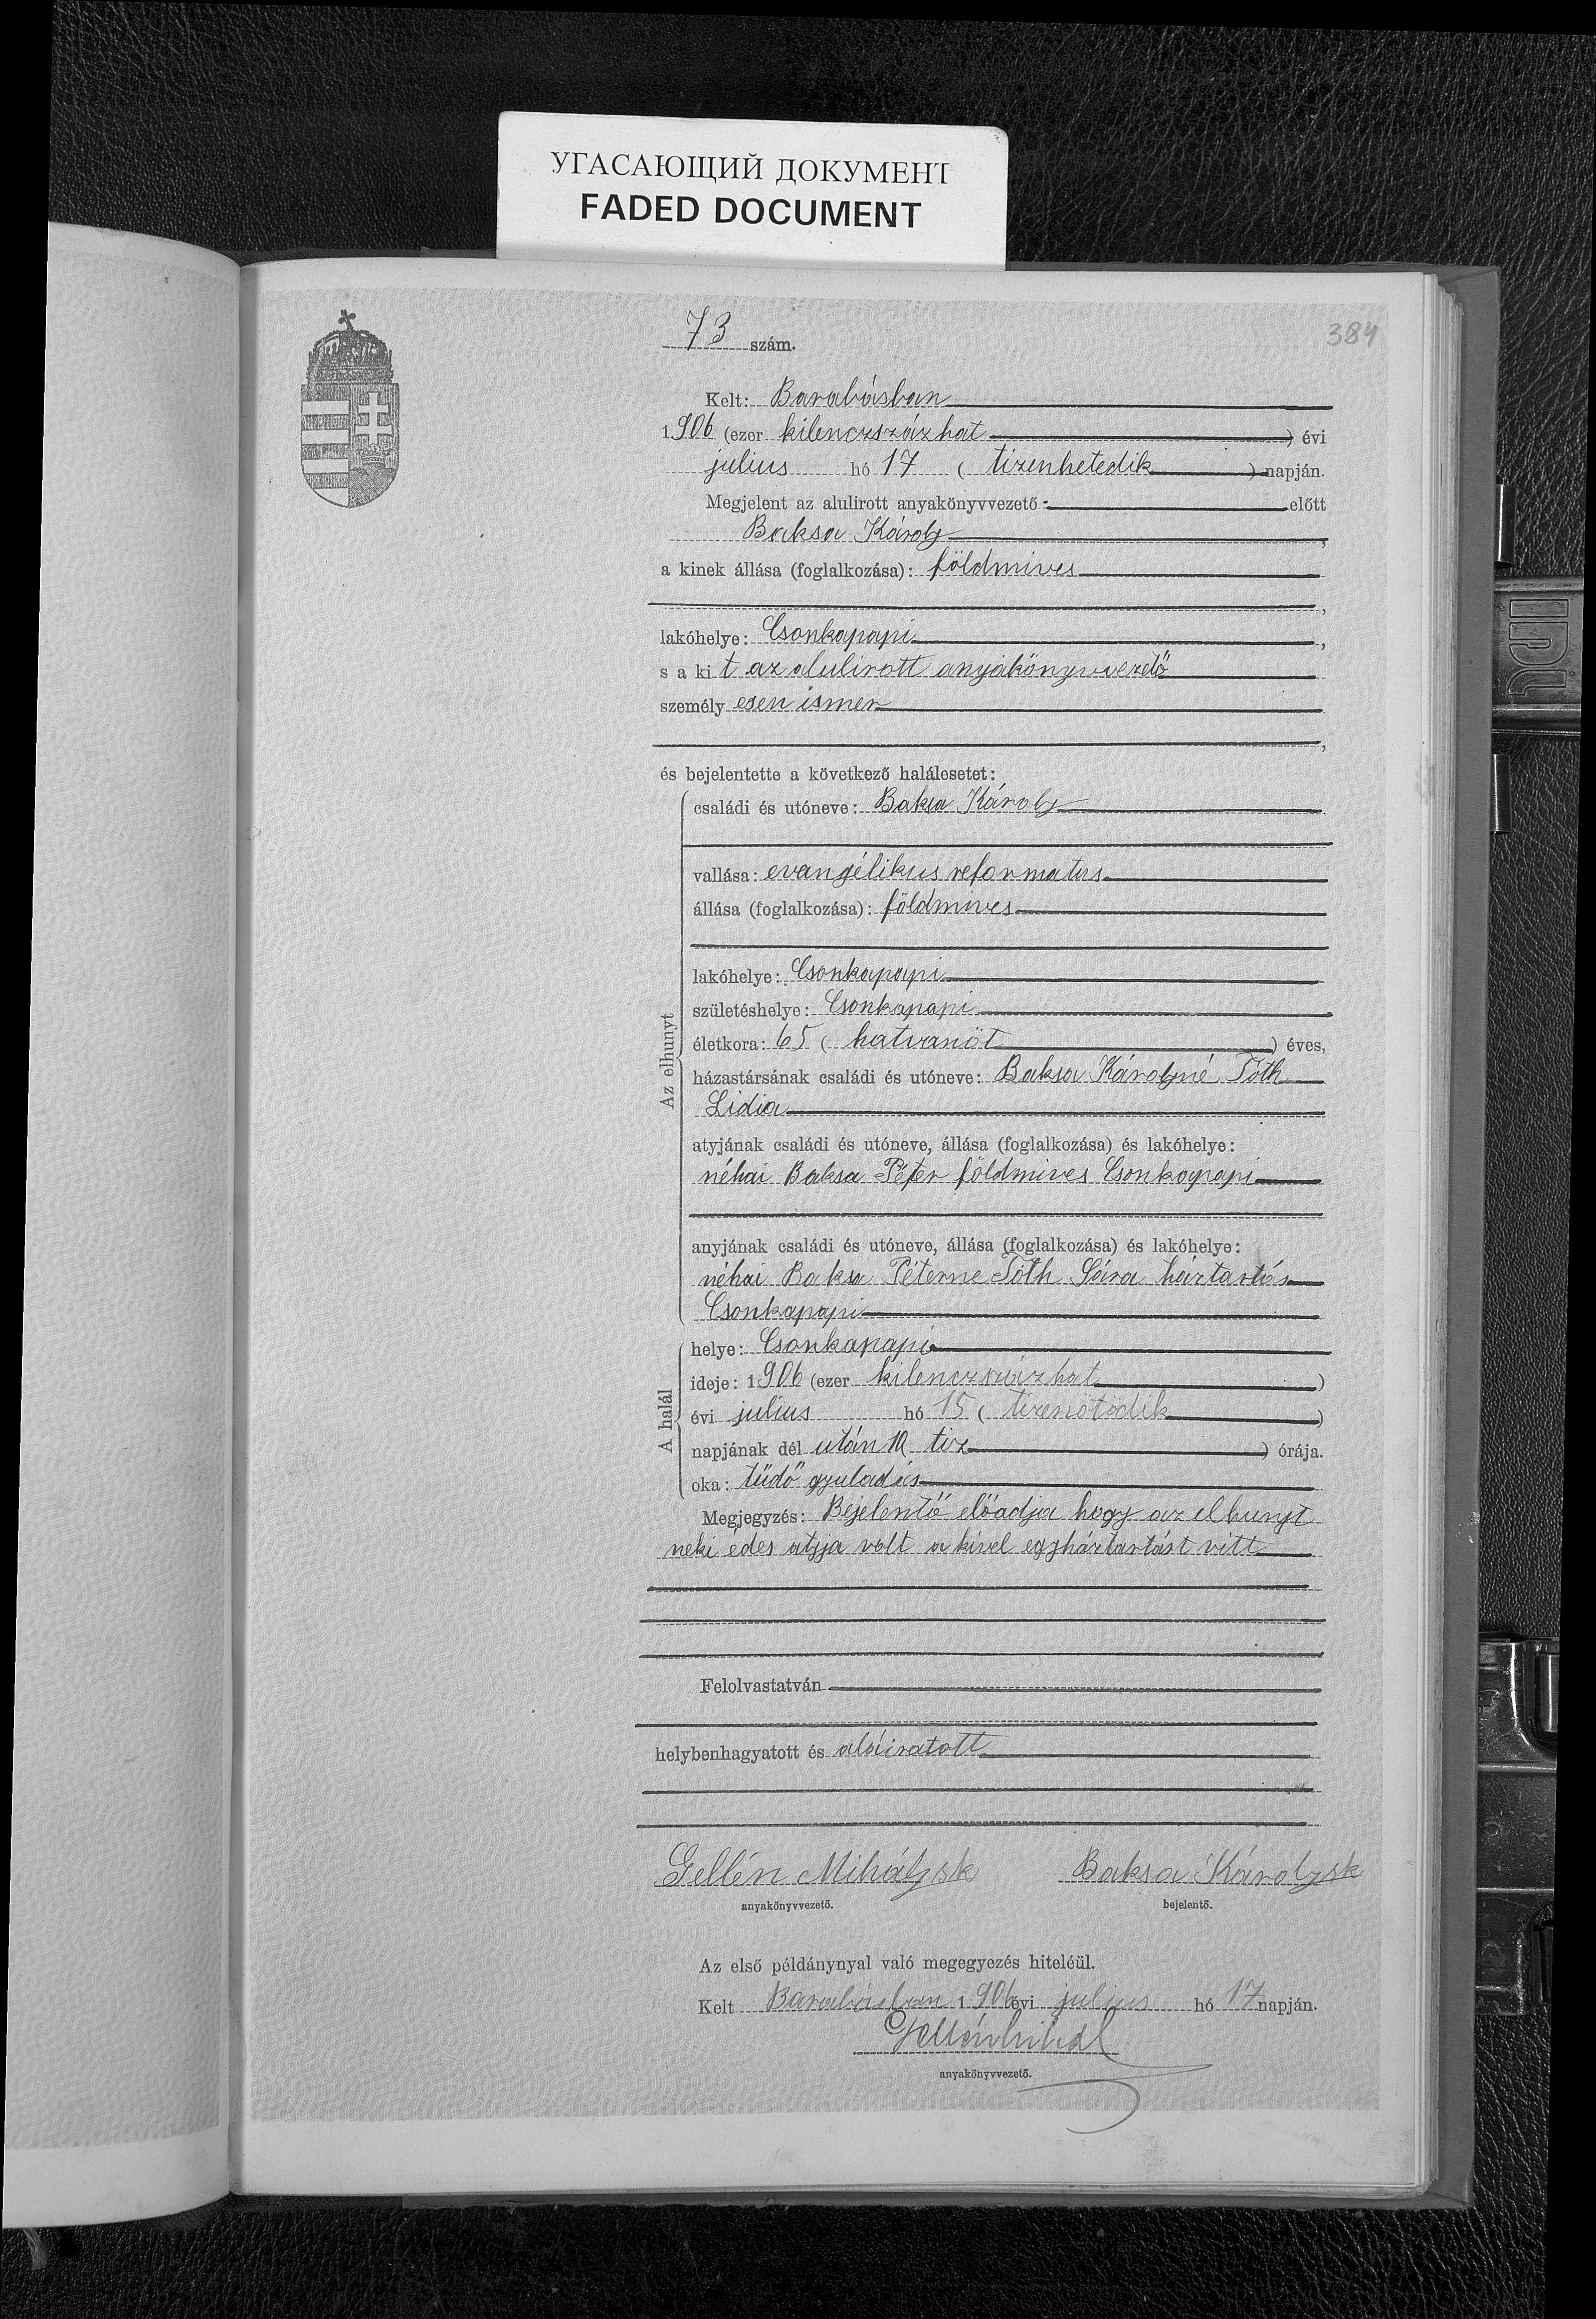 УГАСАЮЩИЙ ДОКУМЕНТ
FADED DOCUMENT
73 szám.
384
Kelt: Barabásban
1906 (ezer kilenczszázhat) évi
julius hó 17 (tizenhetedik) napján.
Megjelent az alulirott anyakönyvvezető előtt
Baksa Károly,
a kinek állása (foglalkozása): földmives
,
lakóhelye: Csonkapapi,
s a kit az alulirott anyakönyvvezető
személyesen ismer
,
és bejelentette a következő halálesetet:
Az elhunyt
családi és utóneve: Baksa Károly
vallása: evangélikus reformatus
állása (foglalkozása): földmives
lakóhelye: Csonkapapi
születéshelye: Csonkapapi
életkora: 65 (hatvanöt) éves,
házastársának családi és utóneve: Baksa Károlyné Tóth
Lidia
atyjának családi és utóneve, állása (foglalkozása) és lakóhelye:
néhai Baksa Péter földmives Csonkapapi
anyjának családi és utóneve, állása (foglalkozása) és lakóhelye:
néhai Baksa Péterne Tóth Sára háztartás
Csonkapapi
A halál
helye: Csonkapapi
ideje: 1906 (ezer kilenczszázhat)
évi julius hó 15 (tizenötödik)
napjának dél után 10 tiz) órája.
oka: tüdő gyuladás
Megjegyzés: Bejelentő előadja hogy az elhunyt
neki édes atyja volt a kivel egyháztartást vitt
Felolvastatván
helybenhagyatott és aláiratott
Gellén Mihály sk Baksa Károly sk
anyakönyvvezető. bejelentő.
Az első példánynyal való megegyezés hiteléül.
Kelt Barabásban 1906 évi julius hó 17 napján.
Gellén Mihál
anyakönyvvezető.